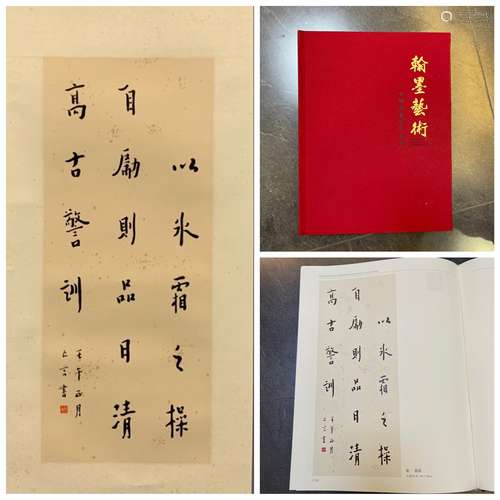 以氷霜之操
自勵則品日清
高古警訓
壬午正月
翰墨藝術
以氷霜之操
自勵則品日清
高古警訓
壬午正月